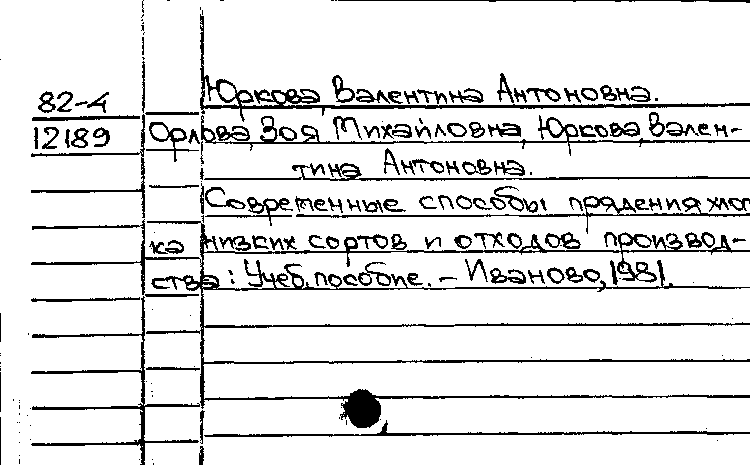 Юркова, Валентина Антоновна.
82-4
12189 Орлова, Зоя Михайловна, Юркова, Вален-
тина Антоновна.
Современные способы прядения хлоп
ка низких сортов и отходов производ-
ства: Учеб. пособие. – Иваново, 1981.